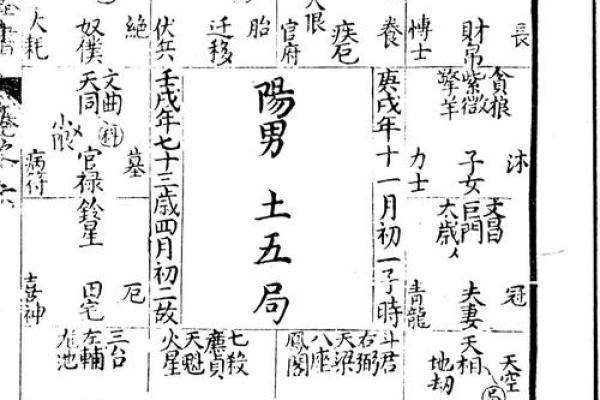 長
財帛
博士
養
疾厄
官府
大限
胎
遷移
伏兵
絶
奴僕
大耗
貪狼
紫微
擎羊
沐
子女
力士
文昌
巨門
太歲
冠
夫妻
青龍
天空
天相
地劫
庚戌年十一月初一子時
陽男 土五局
壬戌年七十三歲四月初二故
斗君
右弼
天梁
八座
鳳閣
七殺
廉貞
天魁
火星
文曲
天同
科
小限
墓
官禄
病符
鈴星
田宅
喜神
三台
左輔